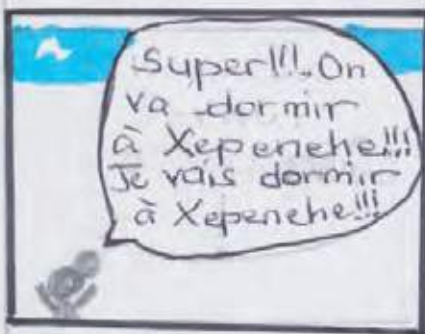 Super!!!. On
va dormir
à Xepenehe!!!
Je vais dormir
à Xepenehe!!!